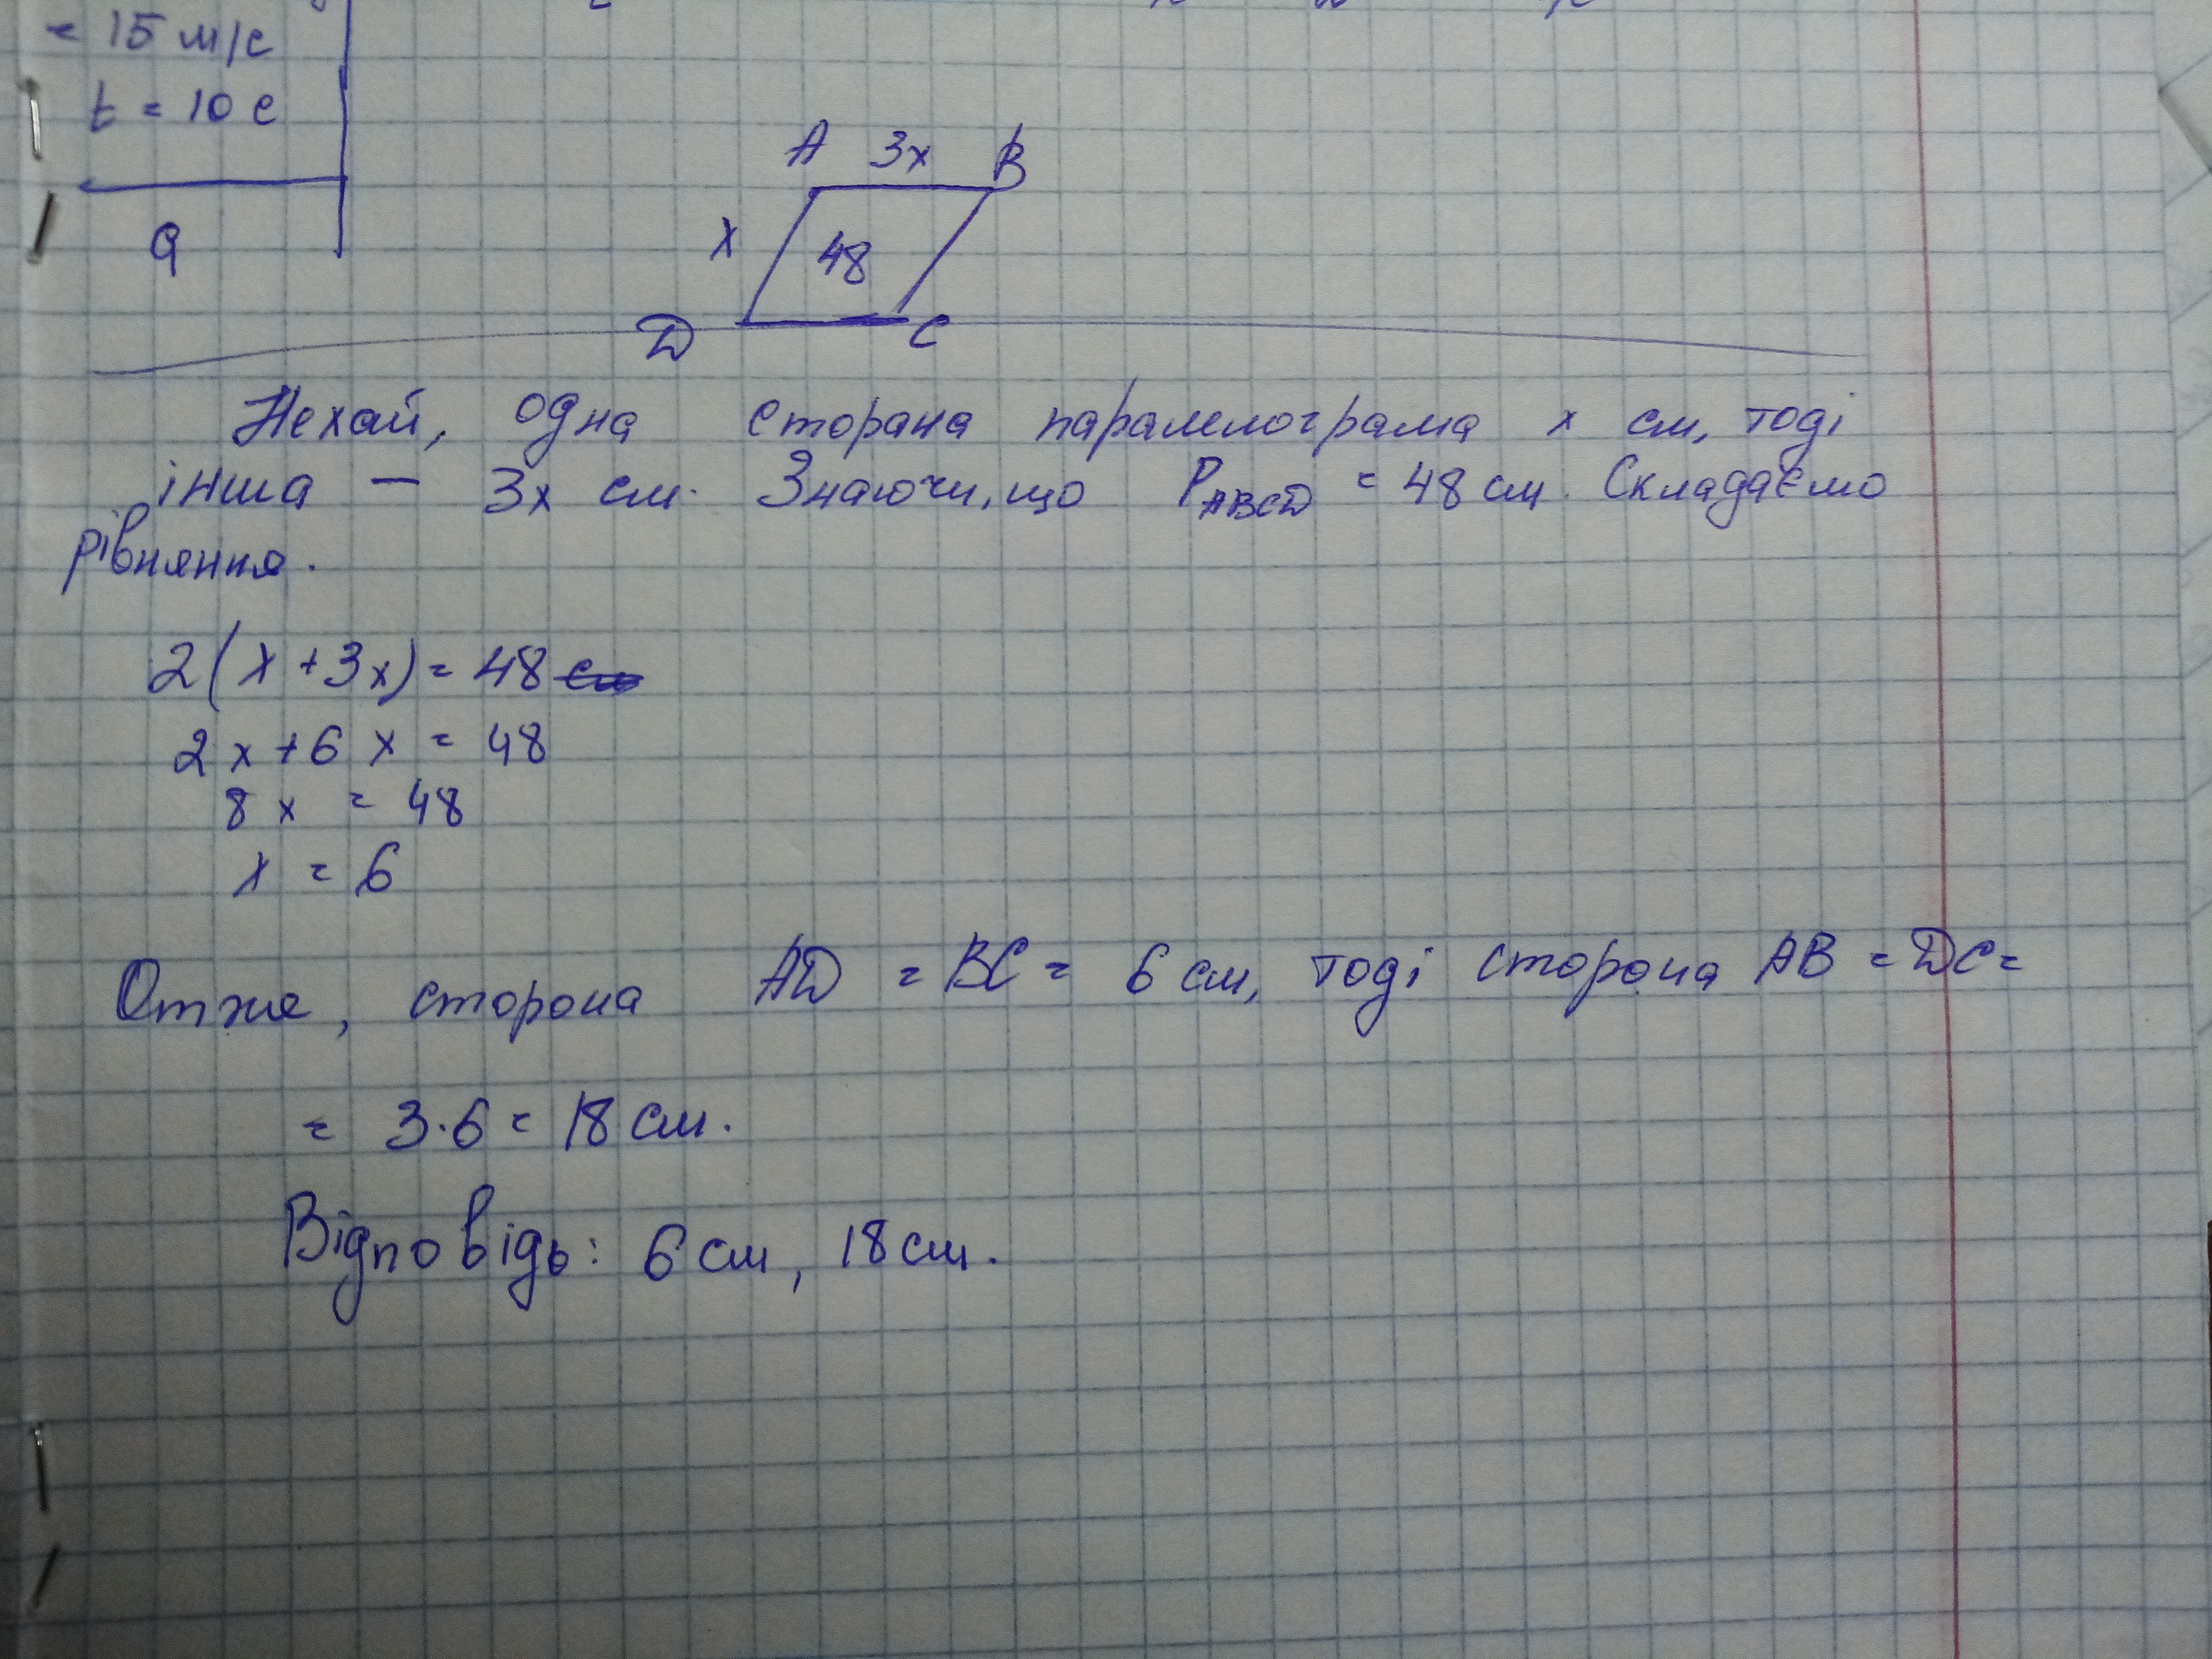 = 15 м/с
t = 10 с
a
A 3x B
x
48
D C
Нехай, одна сторана паралелограма x см, тоді
інша — 3x см. Знаючи, що P ABCD = 48 см. Складаємо
рівняння.
2(x+3x) = 48
2x+6x = 48
8x = 48
x = 6
Отже, сторона AD = BC = 6 см, тоді сторона AB = DC =
= 3·6 = 18 см.
Відповідь: 6 см, 18 см.